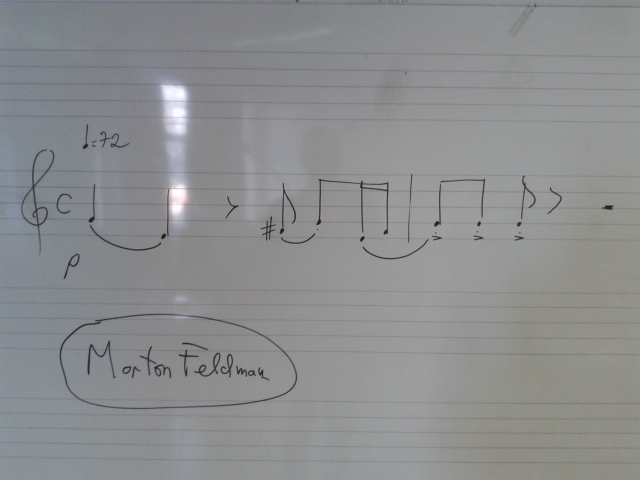 ♩=72
C
p
Morton Feldman